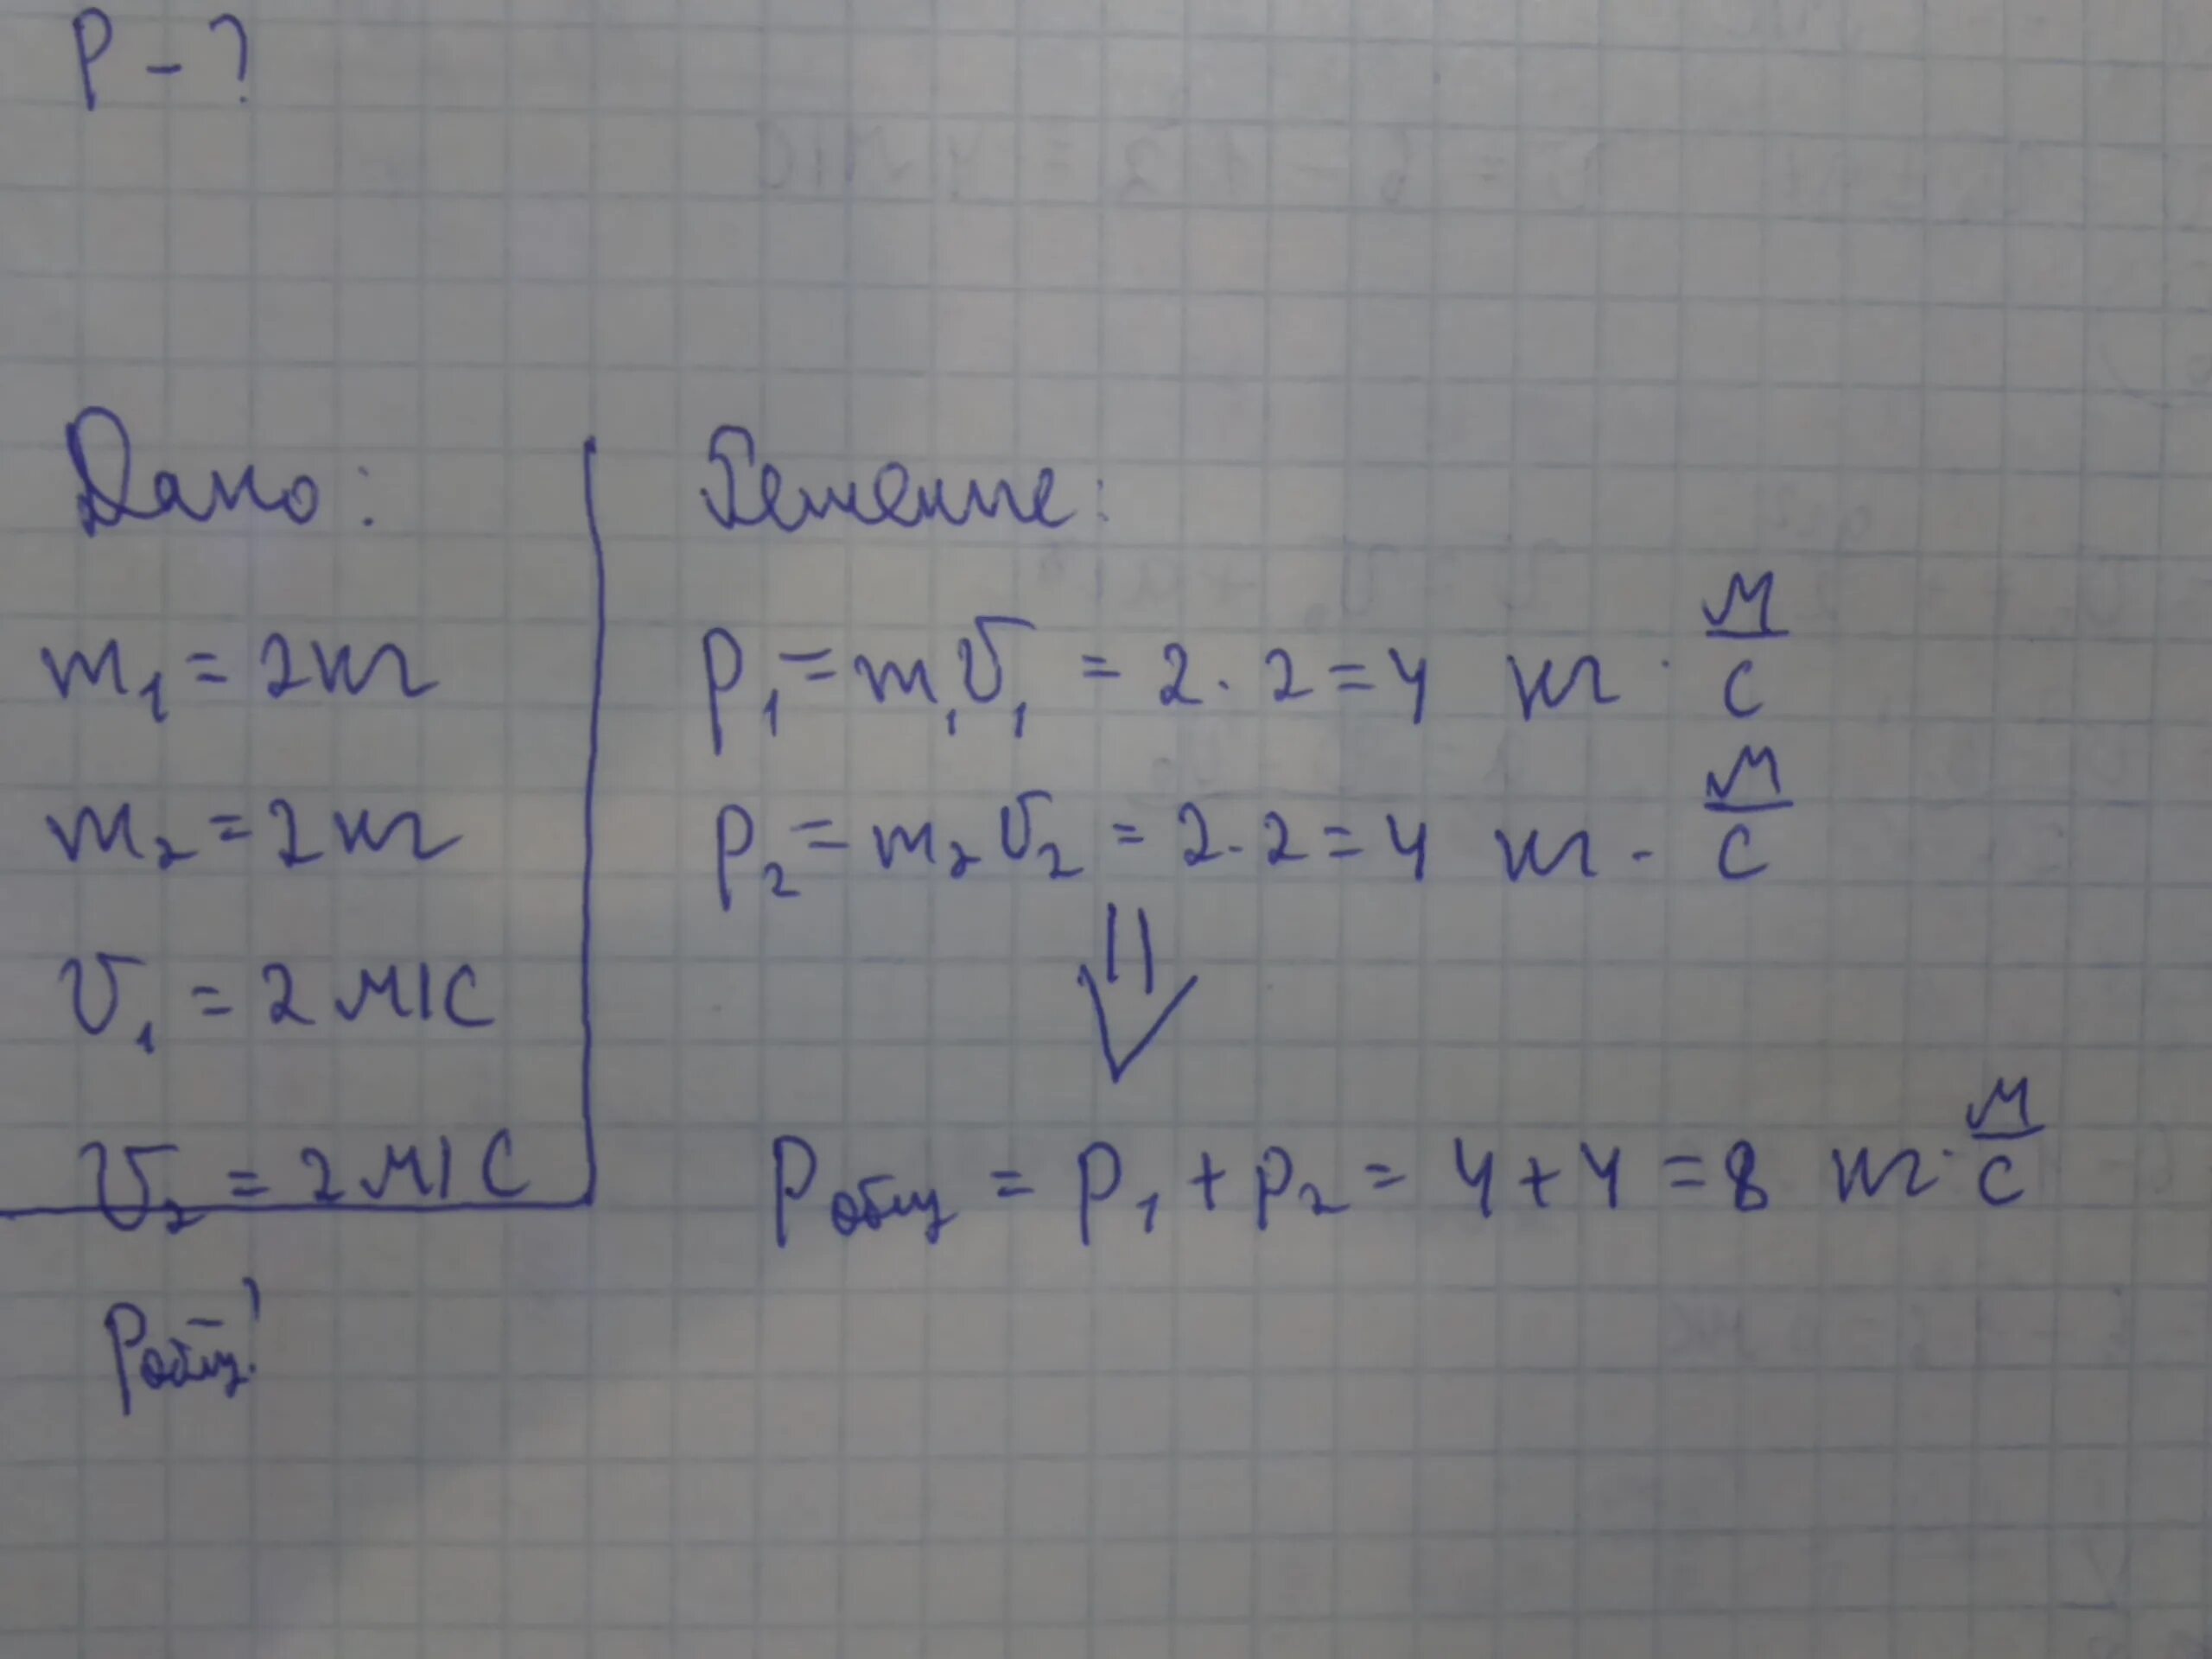 P - ?
Дано:
m₁ = 2 кг
m₂ = 2 кг
υ₁ = 2 м/с
υ₂ = 2 м/с
Pобщ - ?
Решение:
p₁ = m₁υ₁ = 2 · 2 = 4 кг · м/с
p₂ = m₂υ₂ = 2 · 2 = 4 кг · м/с
⇓
Pобщ = p₁ + p₂ = 4 + 4 = 8 кг · м/с